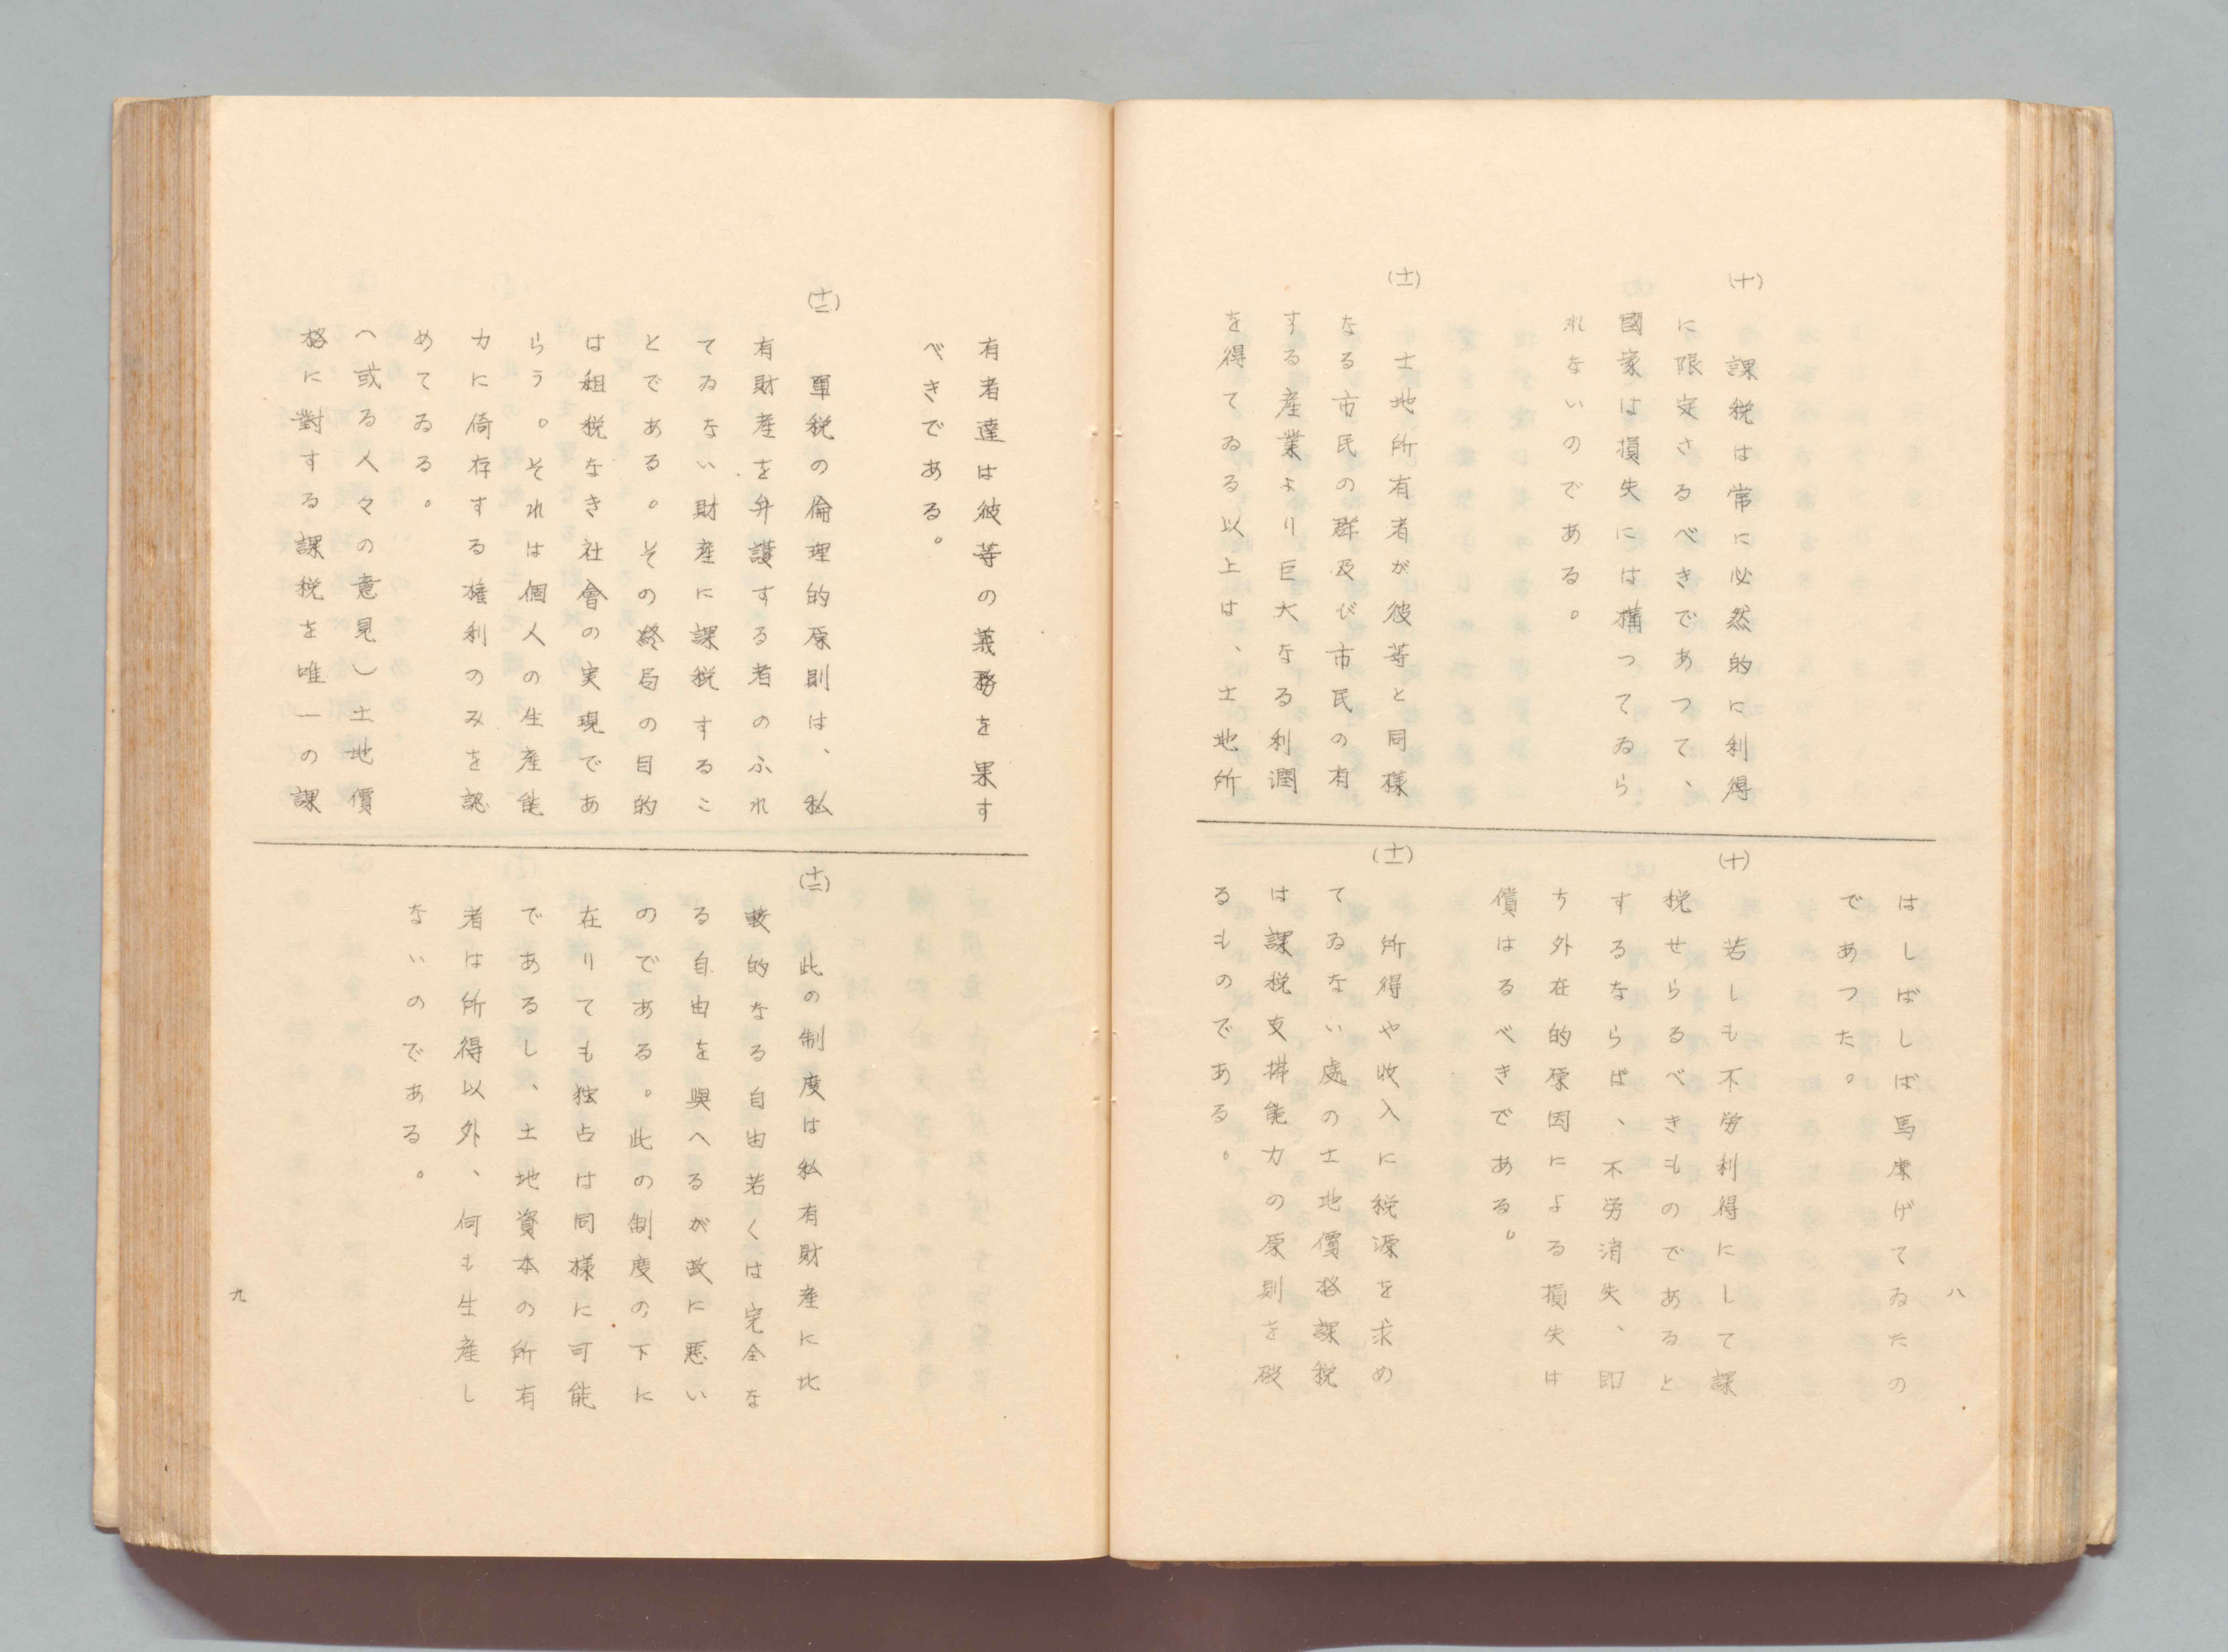 (十)
課税は常に必然的に利得
に限定さるべきであつて、
國家は損失には構つてゐら
れないのである。
(十一)
土地所有者が彼等と同様
なる市民の群及び市民の有
する産業より巨大なる利潤
を得てゐる以上は、土地所
はしばしば馬鹿げてゐたの
であつた。
(十)
若しも不労利得にして課
税せらるべきものであると
するならば、不労消失、即
ち外在的原因による損失は
償はるべきである。
(十一)
所得や收入に税源を求め
てゐない處の土地價格課税
は課税支拂能力の原則を破
るものである。
八
有者達は彼等の義務を果す
べきである。
(十二)
單税の倫理的原則は、私
有財産を弁護する者のふれ
てゐない財産に課税するこ
とである。その終局の目的
は租税なき社會の実現であ
らう。それは個人の生産能
力に倚存する権利のみを認
めてゐる。
(或る人々の意見)土地價
格に對する課税を唯一の課
(十二)
此の制度は私有財産に比
較的なる自由若くは完全な
る自由を與へるが故に悪い
のである。此の制度の下に
在りても独占は同様に可能
であるし、土地資本の所有
者は所得以外、何も生産し
ないのである。
九